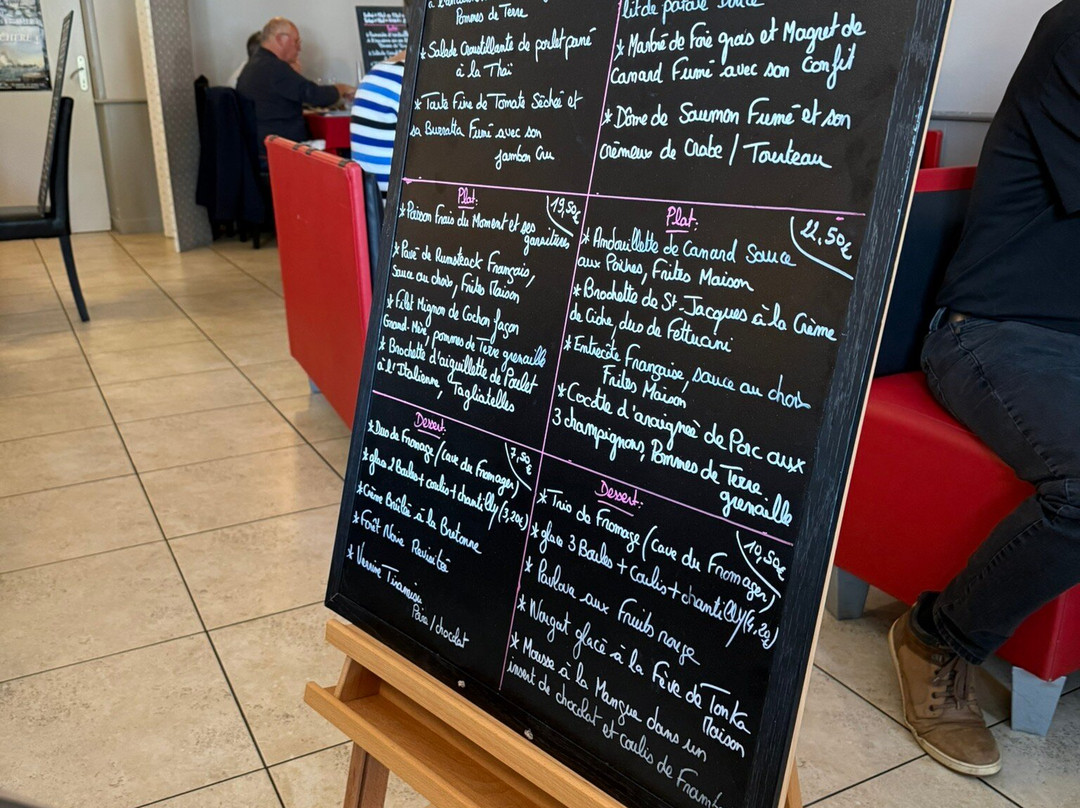 Pommes de Terre
* Salade Croustillante de poulet pané
à la Thaï
* Tarte Fine de Tomate Séchée et
sa Burratta Fumé avec son
Jambon Cru
Plat:
19,50€
* Poisson Frais du Moment et ses
garnitures
* Pavé de Rumsteack Français,
Sauce au choix, Frites Maison
* Filet Mignon de Cochon façon
Grand-Mère, pommes de Terre grenaille
* Brochette d'aiguillette de Poulet
à l'Italienne, Tagliatelles
Dessert:
7,50€
* Duo de Fromage (cave du Fromager)
* glace 2 Boules + coulis + chantilly (3,20€)
* Crème Brûlée à la Bretonne
* Forêt Noire Revisitée
* Verrine Tiramisu
Poire / chocolat
lit de patate Douce
* Marbré de Foie gras et Magret de
Canard Fumé avec son Confit
* Dôme de Saumon Fumé et son
crémeux de Crabe / Tourteau
Plat:
22,50€
* Andouillette de Canard Sauce
aux Poivres, Frites Maison
* Brochette de St-Jacques à la Crème
de Cidre, duo de Fettucini
* Entrecôte Française, sauce au choix
Frites Maison
* Cocotte d'araignée de Porc aux
3 champignons, Pommes de Terre
grenaille
Dessert:
10,50€
* Trio de Fromage (Cave du Fromager)
* glace 3 Boules + Coulis + chantilly (4,20)
* Pavlova aux Fruits rouge
* Nougat glacé à la Fève de Tonka
Maison
* Mousse à la Mangue dans un
insert de chocolat et coulis de